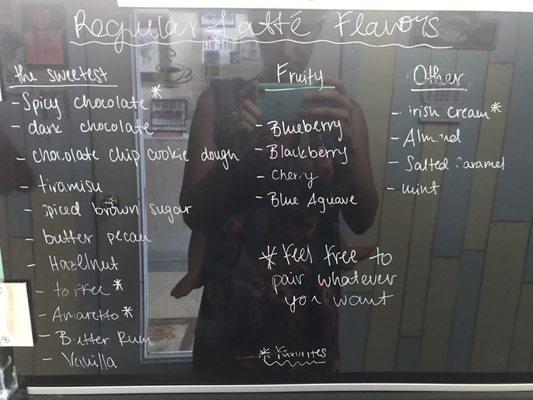 Regular Latté Flavors
the sweetest
- Spicy chocolate *
- dark chocolate
- chocolate chip cookie dough
- tiramisu
- spiced brown sugar
- butter pecan
- Hazelnut
- toffee *
- Amaretto *
- Butter Rum
- Vanilla
Fruity
- Blueberry
- Blackberry
- Cherry
- Blue Aguave
* Feel free to
pair whatever
you want
* Favorites
Other
- irish cream *
- Almond
- Salted Caramel
- mint